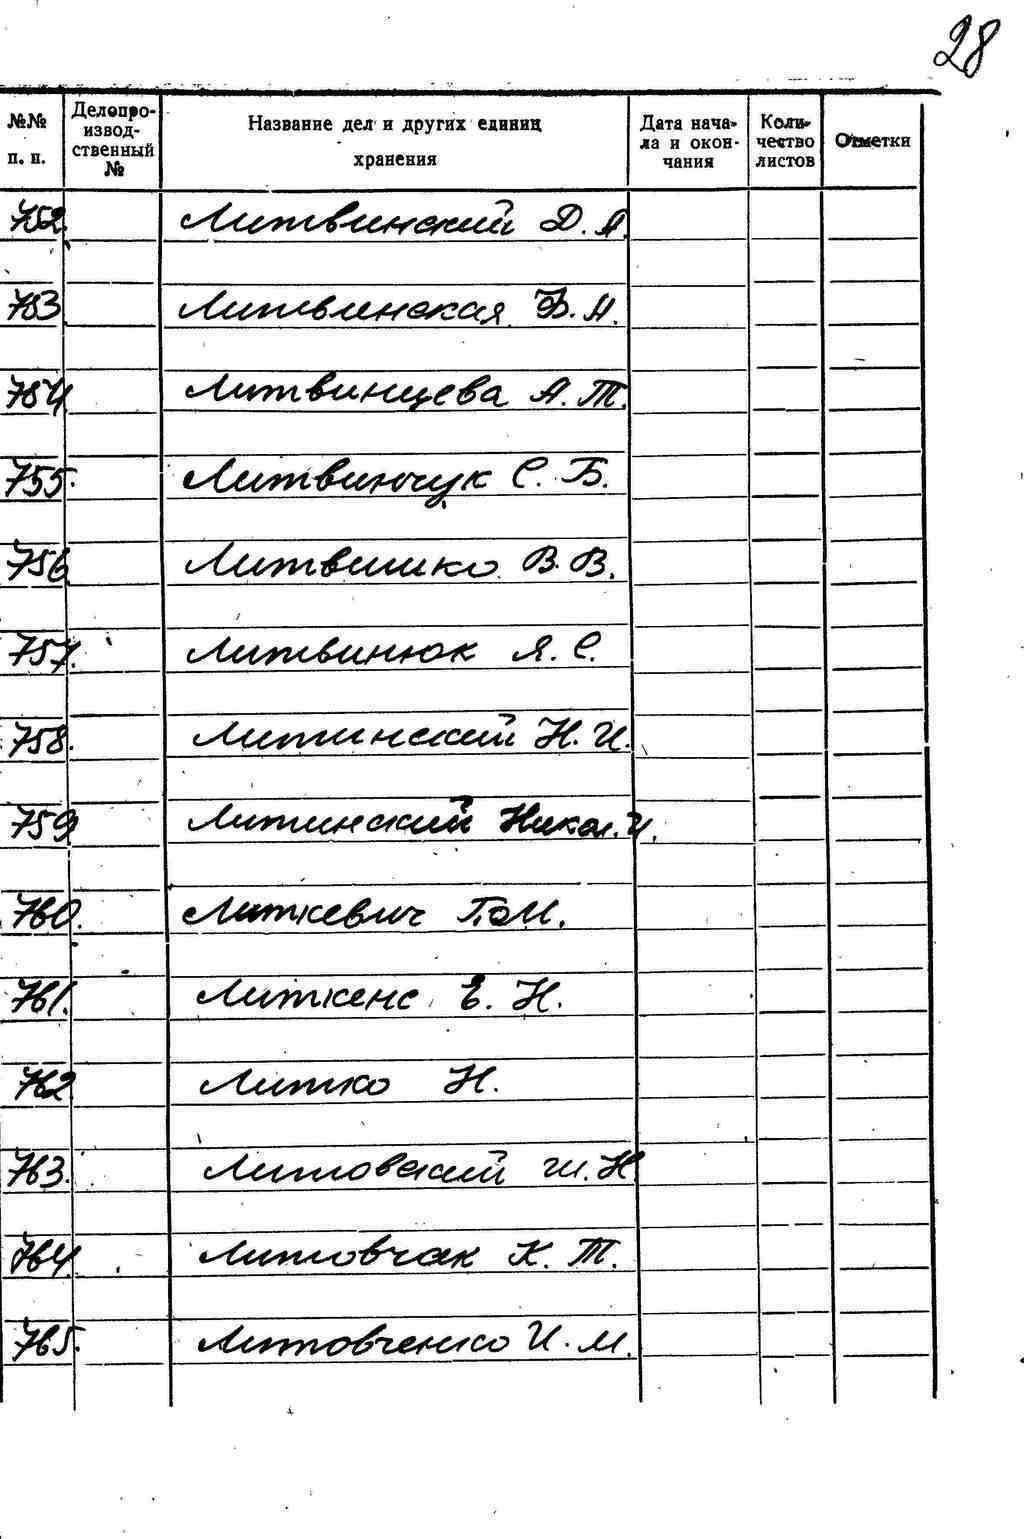 28
№№ п. п. Делопро-извод-ственный № Название дел и других единиц хранения Дата нача-ла и окон-чания Коли-чество листов Отметки
752. Литвинский Д. А.
753 Литвинская Ф. А.
754 Литвинцева А. Т.
755. Литвинчук С. Б.
756 Литвишко В. В.
757. Литвинюк Я. С.
758. Литинский Н. И.
759 Литинский Никол. И.
760. Литкевич М.
761. Литкенс Е. Н.
762 Литко Н.
763. Литовский Ш. Н.
764. Литовчак К. Т.
765. Литовченко И. М.